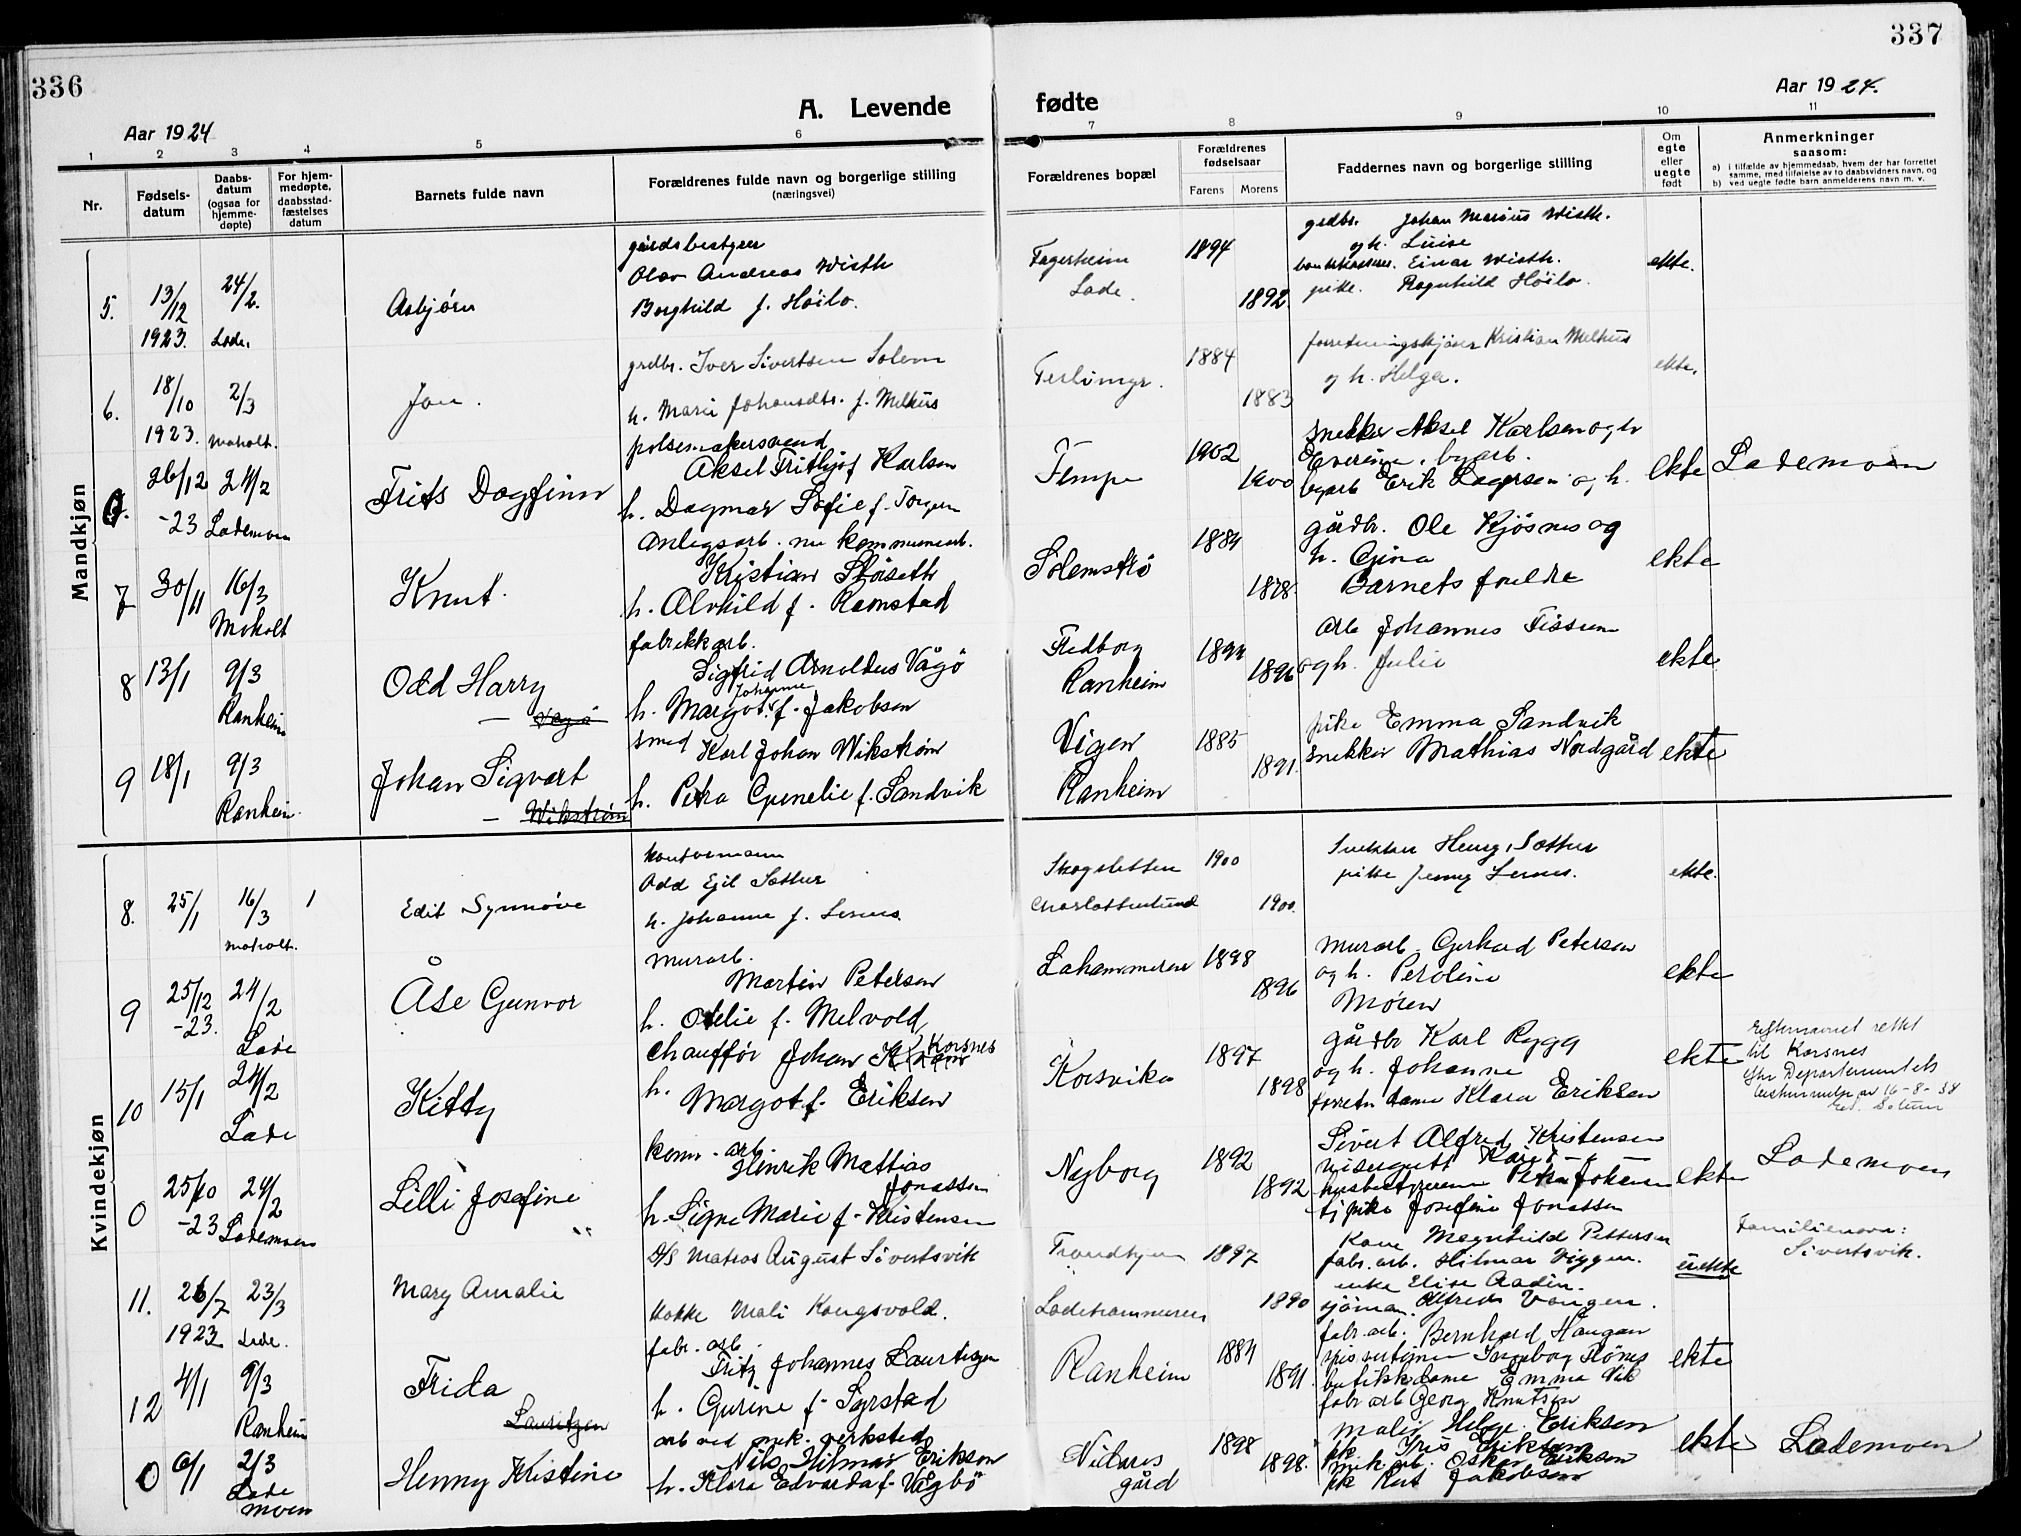 336
337
A. Levende
fødte
Aar 1924
Aar 1924.
1 2 3 4 5 6
7 8 9 10 11
Nr.
Fødsels-
datum
Daabs-
datum
(ogsaa for
hjemme-
døpte)
For hjem-
medøpte,
daabsstad-
fæstelses
datum
Barnets fulde navn
Forældrenes fulde navn og borgerlige stilling
(næringsvei)
Forældrenes bopæl
Forældrenes
fødselsaar
Farens Morens
Faddernes navn og borgerlige stilling
Om
egte
eller
uegte
født
Anmerkninger
saasom:
a) i tilfælde av hjemmedaab, hvem der har forrettet
samme, med tilføielse av to daabsvidners navn, og
b) ved uegte fødte barn anmelderens navn m. v.
Mandkjøn
5. 13/12 1923. 24/2. Lade.
Asbjørn
gårdsbestyrer
Olav Andreas Wisth
Borghild f. Høilo.
Fagerheim
Lade.
1894
1892.
grdbr. Johan Marius Wisth.
og h. Luise
Einar Wisth.
pike. Ragnhild Høilo.
ekte.
6. 18/10 1923. 2/3 Moholt.
Jon.
grdbr. Iver Sivertsen Solem
h. Marie Johansdtr. f. Melhus
1884
1883
Kristian Melhus
og h. Helga.
ekte.
0. 26/12 -23 24/2 Lademoen
Frits Dagfinn
pølsemakersvend
Aksel Frithjof Karlsen
h. Dagmar Sofie f. Torgersen
Tempe
1902
1900
snekker Aksel Karlsen og h
byarb Erik Lagersen og h.
ekte
Lademoen
7 30/11 16/3 Moholt
Knut.
Anlegsarb. nu kommunearb.
Kristian Støiseth
h. Alvhild f. Ramstad
Solemsbrø
1884
1878.
gårdbr. Ole Kjøsnes og
h. Gjina
Barnets foreldre
ekte
8 13/1 9/3 Ranheim
Odd Harry
— Vågø
fabrikkarb.
Sigfrid Arnoldus Vågø
h. Margot Johanne f. Jakobsen
Fredborg
Ranheim
1894
1896
arb Johannes Tissum
og h. Julie
ekte
9 18/1 9/3 Ranheim.
Johan Sigvart
— Wikstrøm
smed Karl Johan Wikstrøm
h. Petra Cornelie f. Sandvik
Vigen
Ranheim
1885
1891.
pike Emma Sandvik
snekker Mathias Nordgård
ekte
Kvindekjøn
8. 25/1 16/3 1 Moholt.
Edit Synnøve
kontormann
Odd Egil Sætter
h. Johanne f. Lernes.
Skogsletten
Charlottenlund
1900
1900.
Snekker Henry Sætter
pike Jenny Lernes.
ekte.
9 25/12 -23. 24/2 Lade
Åse Gunvor
murarb.
Martin Petersen
h. Otelie f. Melvold
Ladehammeren
1898
1896
murarb. Gerhard Petersen
og h. Peroline
Møren
ekte
10 15/1 24/2 Lade
Kitty
chauffør Johan Korsnes
h. Margot f. Eriksen
Korsvika
1897
1898
gårdbr Karl Rygg
og h. Johanne
forretn dame Klara Eriksen
ekte
Efternavnet rettet
til Korsnes
iflg Departementets
av 16-8-38
0 25/10 -23 24/2 Lademoen
Lilli Josefine
komm-arb.
Henrik Mattias
Jonassen
h. Signe Marie f. Kristensen
Nyborg
1892
1892
Sivert Alfred Kristensen
visergutt Kåre — " —
husbestyrerinne Petra Johansen
tj pike Josefine Jonassen
ekte
Lademoen
11. 26/7 1923 23/3 Lade.
Mary Amalie
D/S matros August Sivertsvik
kokke Mali Kongsvold.
Trondhjem
Ladehammeren
1897
1890
Kone Magnhild Pettersen
fabr. arb. Hilmar Viggen.
enke Elise Aadin.
sjøman. Alfred Vangen.
uekte
Familienavn:
Sivertsvik.
12 4/1 9/3 Ranheim
Frida
Lauritzen
fabr. arb.
Fritz Johannes Lauritzen
h. Gurine f. Syrstad
Ranheim
1884
1891.
fabr. arb. Bernhard Haugan
Ingeborg Rønes
butikkdame Emma Vik
fabr arb Georg Knutsen
ekte
0 6/1 2/3 Lademoen
Henny Kristine
arb ved mek. verksted
Nils Hilmar Eriksen
h. Klara Edvarda f. Vågbø
Nidares
gård
1898
1898.
Helge Eriksen
pk. Iris Eriksen
mek arb. Oskar Eriksen
pk Rut Jakobsen
ekte
Lademoen